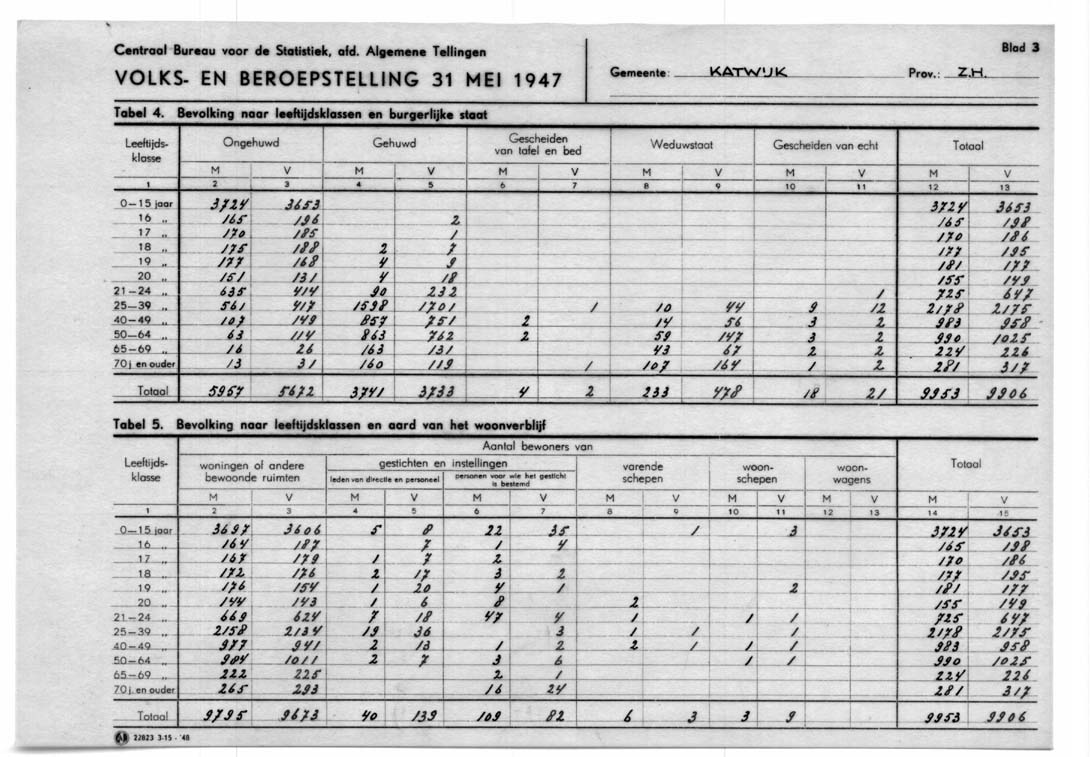 Centraal Bureau voor de Statistiek, afd. Algemene Tellingen
Blad 3
VOLKS- EN BEROEPSTELLING 31 MEI 1947
Gemeente: KATWIJK Prov.: Z.H.
Tabel 4. Bevolking naar leeftijdsklassen en burgerlijke staat
Leeftijds-klasse Ongehuwd Gehuwd Gescheiden van tafel en bed Weduwstaat Gescheiden van echt Totaal
M V M V M V M V M V M V
1 2 3 4 5 6 7 8 9 10 11 12 13
0—15 jaar 3724 3653 3724 3653
16 „ 165 196 2 165 198
17 „ 170 185 1 170 186
18 „ 175 188 2 7 177 195
19 „ 177 168 4 9 181 177
20 „ 151 131 4 18 155 149
21—24 „ 635 414 90 232 1 725 647
25—39 „ 561 417 1598 1701 1 10 44 9 12 2178 2175
40—49 „ 107 149 857 751 2 14 56 3 2 983 958
50—64 „ 63 114 863 762 2 59 147 3 2 990 1025
65—69 „ 16 26 163 131 43 67 2 2 224 226
70 j en ouder 13 31 160 119 1 107 164 1 2 281 317
Totaal 5957 5672 3741 3733 4 2 233 478 18 21 9953 9906
Tabel 5. Bevolking naar leeftijdsklassen en aard van het woonverblijf
Aantal bewoners van
Leeftijds-klasse woningen of andere bewoonde ruimten gestichten en instellingen leden van directie en personeel personen voor wie het gesticht is bestemd varende schepen woon-schepen woon-wagens Totaal
M V M V M V M V M V M V M V
1 2 3 4 5 6 7 8 9 10 11 12 13 14 15
0—15 jaar 3697 3606 5 8 22 35 1 3 3724 3653
16 „ 164 187 7 1 4 165 198
17 „ 167 179 1 7 2 170 186
18 „ 172 176 2 17 3 2 177 195
19 „ 176 154 1 20 4 1 2 181 177
20 „ 144 143 1 6 8 2 155 149
21—24 „ 669 624 7 18 47 4 1 1 1 725 647
25—39 „ 2158 2134 19 36 3 1 1 1 2178 2175
40—49 „ 977 941 2 13 1 2 2 1 1 1 983 958
50—64 „ 984 1011 2 7 3 6 1 1 990 1025
65—69 „ 222 225 2 1 224 226
70 j. en ouder 265 293 16 24 281 317
Totaal 9795 9673 40 139 109 82 6 3 3 9 9953 9906
22823 3-15 - '48